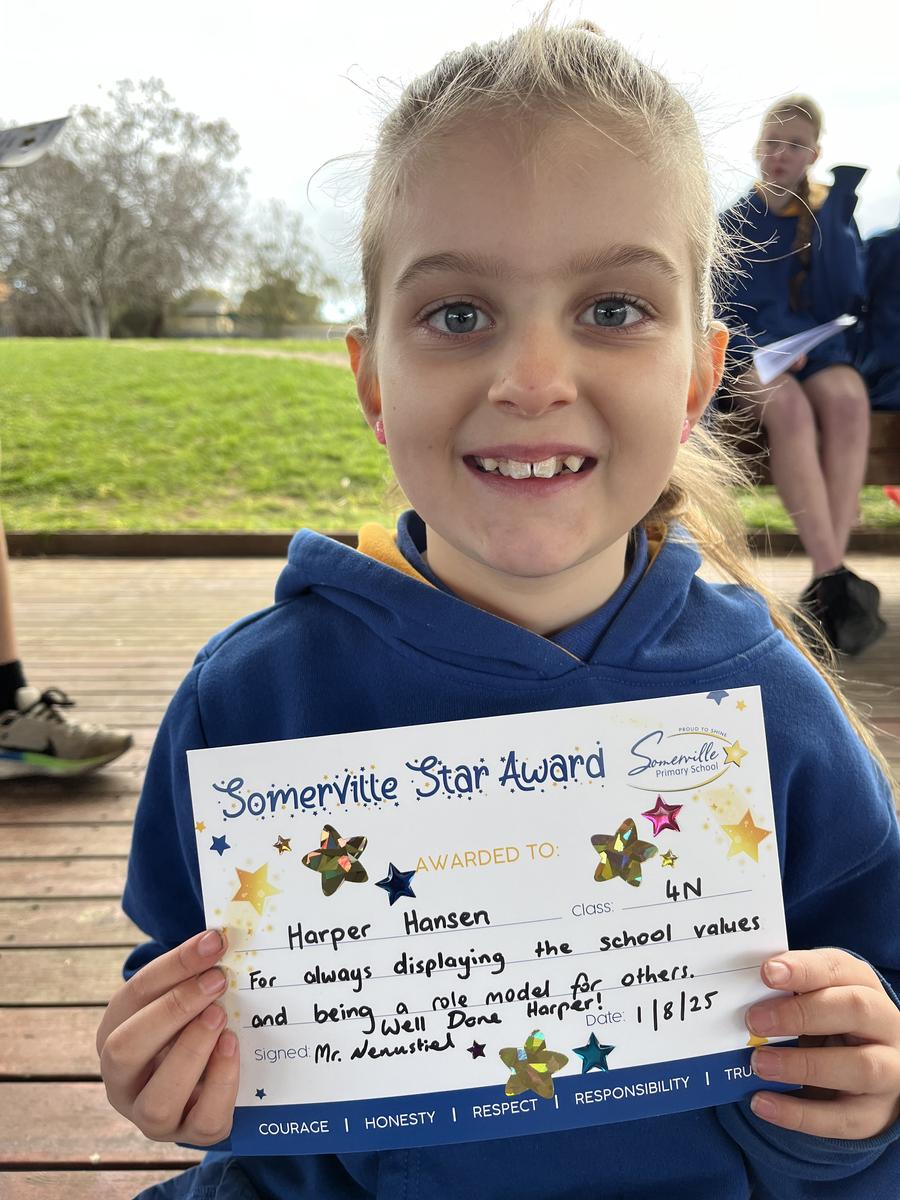 PROUD TO SHINE
Somerville
Primary School
Somerville Star Award
AWARDED TO:
Harper Hansen Class: 4N
For always displaying the school values
and being a role model for others.
Well Done Harper!
Date: 1/8/25
Signed: Mr. Nenustiel
COURAGE | HONESTY | RESPECT | RESPONSIBILITY | TRU